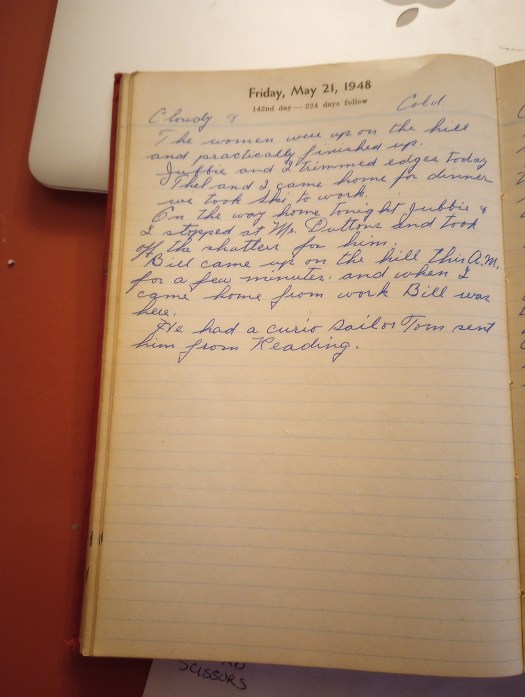 Friday, May 21, 1948
142nd day — 224 days follow
Cloudy & Cold
The women were up on the hill
and practically finished up.
Jubbie and I trimmed edges today
Thel and I came home for dinner
we took Ski to work.
On the way home tonight Jubbie &
I stopped at Mr. Duttons and took
off the shutters for him.
Bill came up on the hill this A.M.
for a few minutes. and when I
came home from work Bill was
here.
He had a curio sailor Tom sent
him from Reading.
SCISSORS